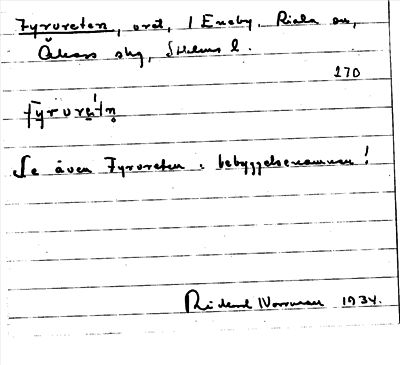 Fyrvreten, vret, i Eneby, Riala sn,
Åkers skg, Sthlms l.
270
Se även Fyrvreten i bebyggelsenamnen!
Rickard Norrman 1934.